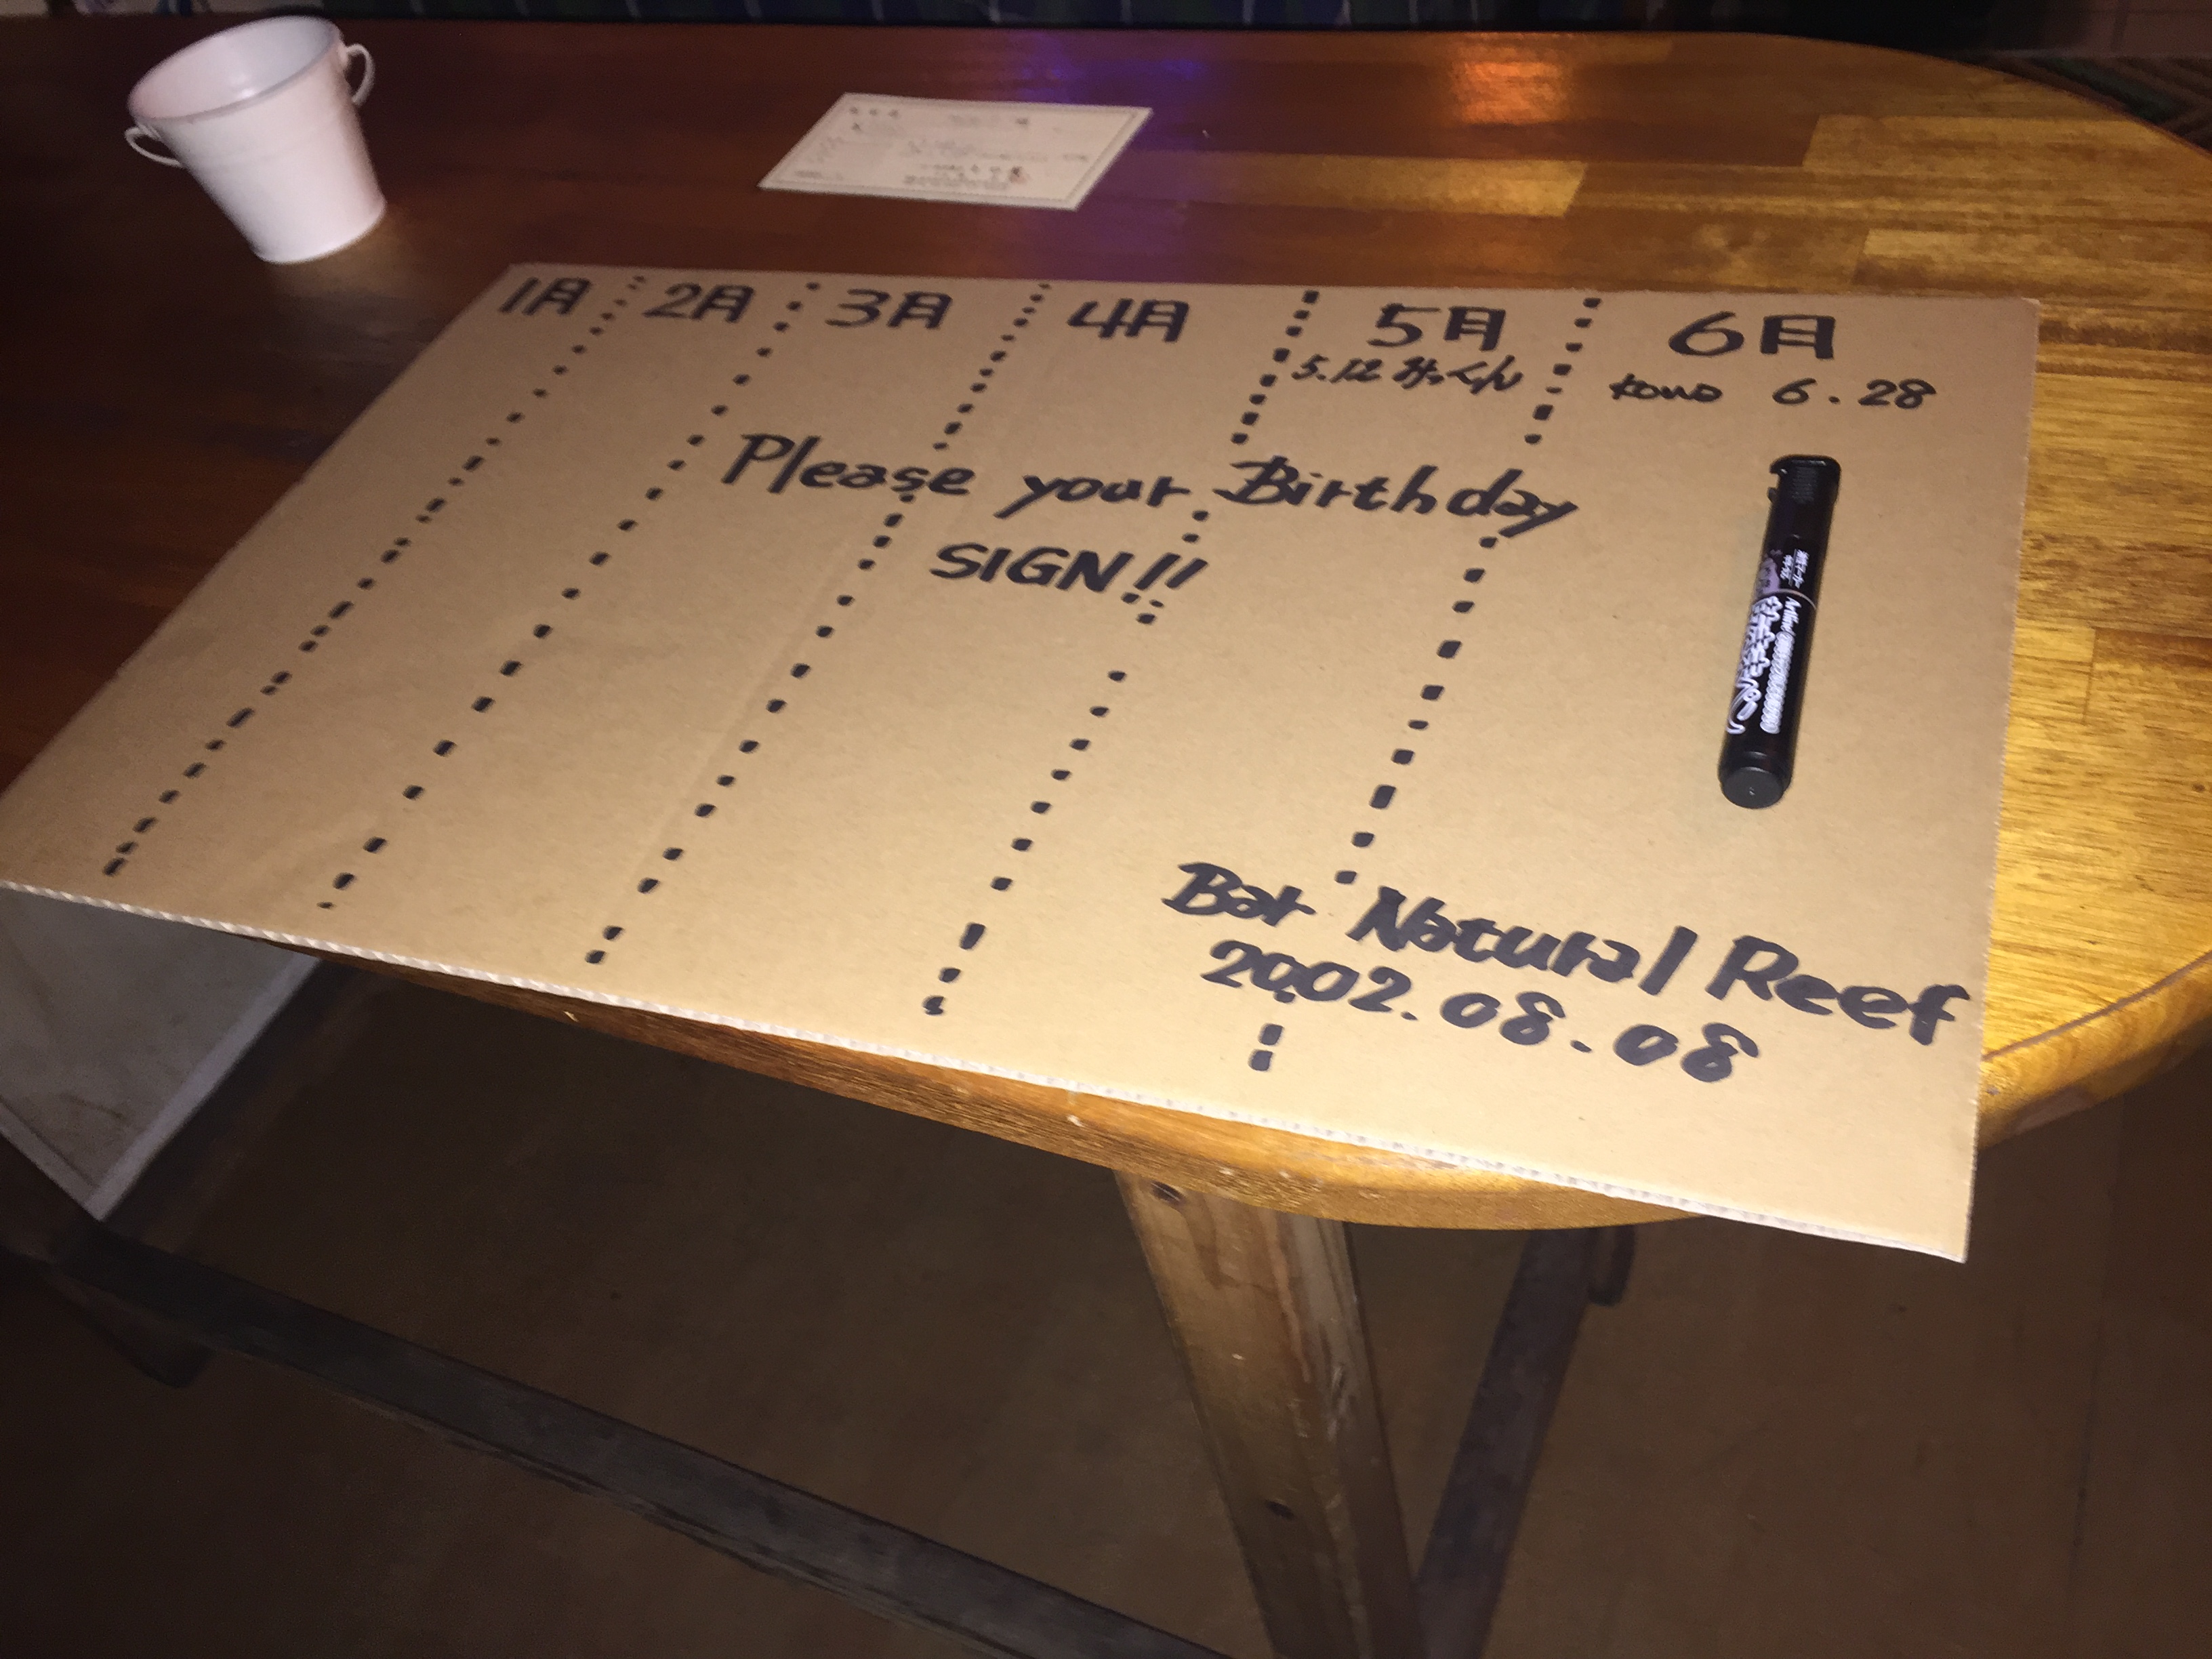 1月 2月 3月 4月 5月 6月
5.12 みっくん
kono 6.28
Please your Birthday
SIGN!!
Bar Natural Reef
2002.08.08